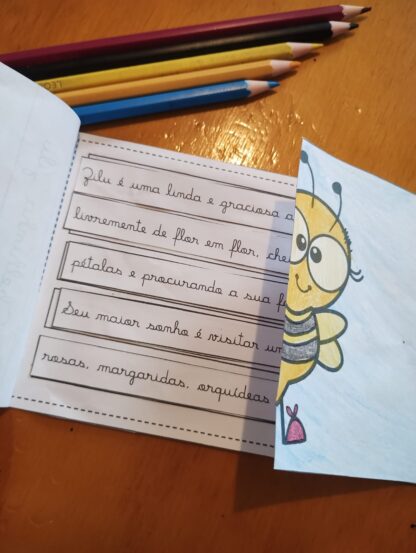 Zilu é uma linda e graciosa a
livremente de flor em flor, che
pétalas e procurando a sua f
Seu maior sonho é visitar um
rosas, margaridas, orquídeas